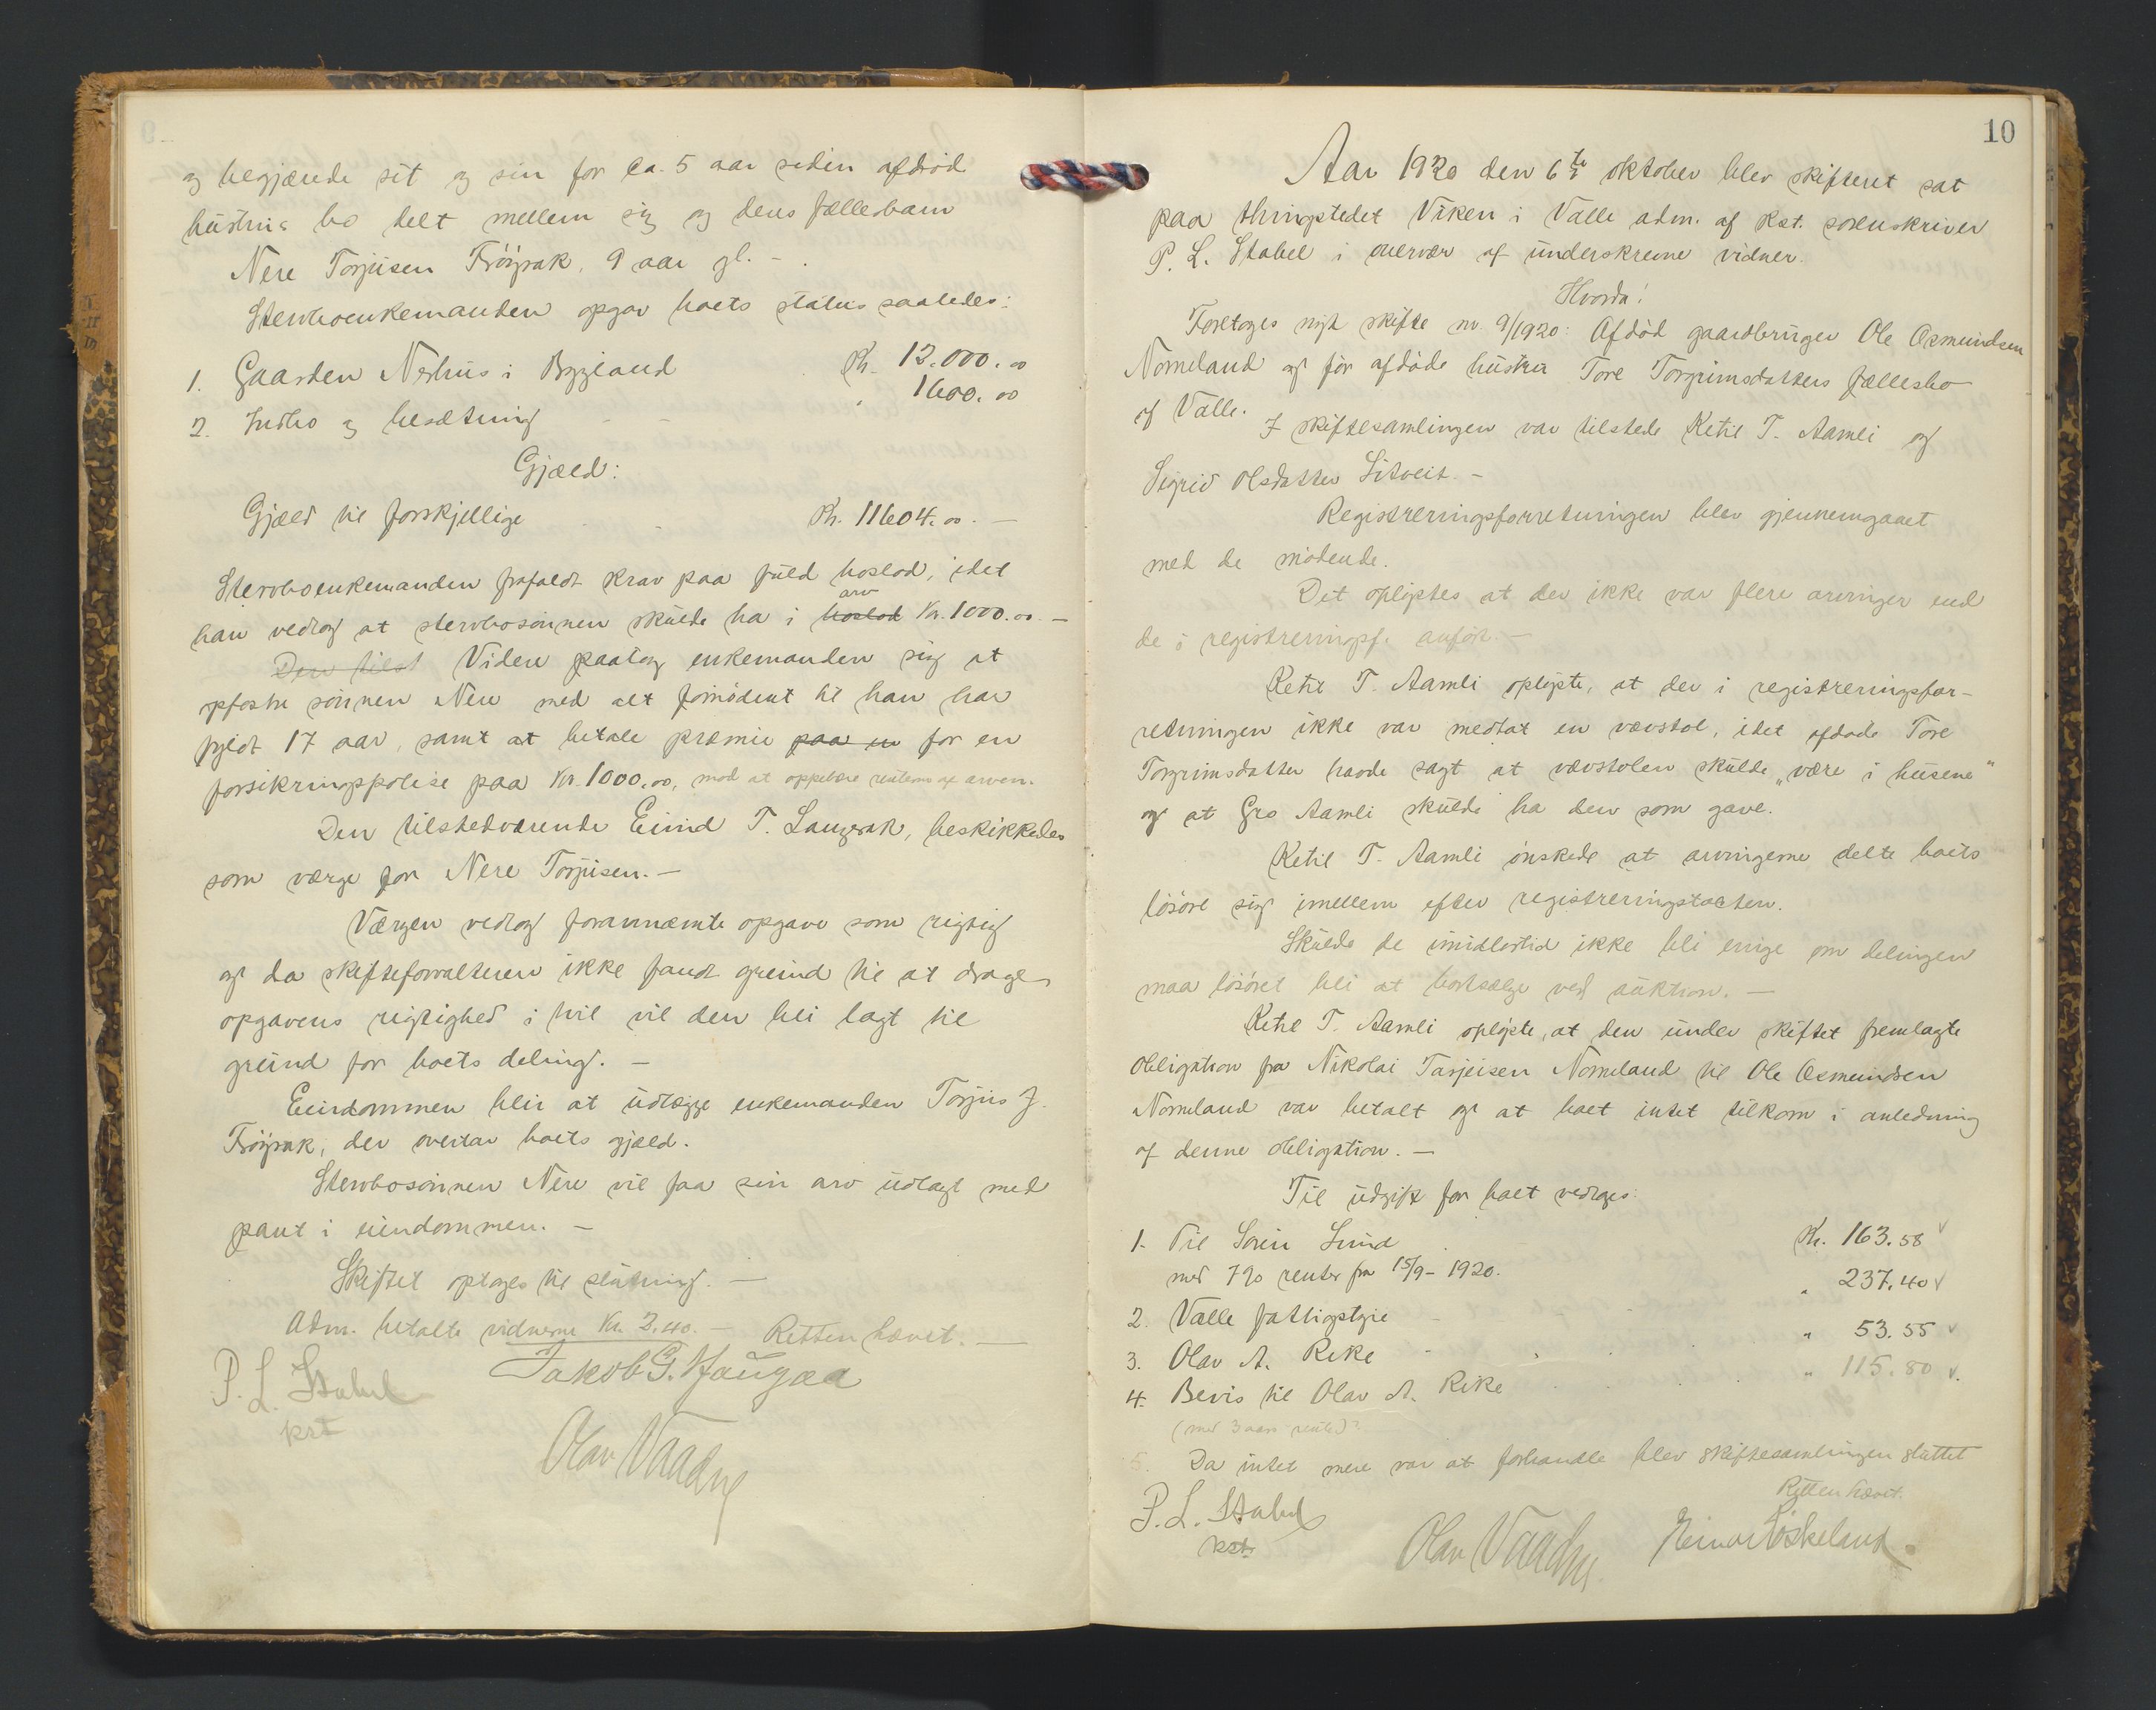 og begjærede sit og sin for ca. 5 aar siden afdöd
hustrus bo delt mellem sig og deres fællesbarn
Nere Torjusen Fröysak, 9 aar gl. -
Stervboenkemanden opgav boets status saaledes:
1. Gaarden Neshus i Bygland Kr. 12.000.00
2. Indbo og besætning - - " 1600.00
Gjæld:
Gjæld til forskjellige - Kr. 11604.00. -
Stervboenkemanden frafaldt krav paa fuld boslod, idet
han vedtog at stervbosönnen skulde ha i boslod arv Kr. 1000.00. -
Den tilst Videre paatog enkemanden sig at
opfostre sönnen Nere med alt fornödent til han har
fyldt 17 aar, samt at betale præmie paa en for en
forsikringspolise paa Kr. 1000.00, mod at oppebære renterne af arven.
Den tilstedværende Eivind T. Langerak, beskikkedes
som værge for Nere Torjusen. -
Værgen vedtog forannævnte opgave som rigtig
og da skifteforvalteren ikke fandt grund til at drage
opgavens rigtighed i tvil vil den bli lagt til
grund for boets deling. -
Eiendommen blir at udlægge enkemanden Torjus J.
Fröysak, der overtar boets gjæld.
Stervbosönnen Nere vil faa sin arv udlagt med
pant i eiendommen. -
Skiftet optages til slutning. -
Adm. betalte vidnerne Kr. 2.40. - Retten hævet. -
P. L. Stabel Jakob G. Haugaa
kst
Olav Vaadne
10
Aar 1920 den 6te oktober blev skifteret sat
paa thingstedet Viken i Valle adm. af kst. sorenskriver
P. L. Stabel i overvær af underskrevne vidner.
Hvorda!
Foretoges nyt skifte nr. 9/1920: Afdöd gaardbruger Ole Osmundsen
Nomeland og för afdöde hustru Tore Torgrimsdatters fællesbo
af Valle.
I skiftesamlingen var tilstede Ketil T. Aamli og
Sigrid Olsdatter Litveit. -
Registreringsforretningen blev gjennemgaaet
med de mödende.
Det oplystes at der ikke var flere arvinger end
de i registreringsf. anfört. -
Ketil T. Aamli oplyste, at der i registreringsfor-
retningen ikke var medtat en vævstol, idet afdöde Tore
Torgrimsdatter havde sagt at vævstolen skulde "være i husene"
og at Gro Aamli skulde ha den som gave.
Ketil T. Aamli önskede at arvingerne delte boets
lösöre sig imellem efter registreringstaksten.
Skulde de imidlertid ikke bli enige om delingen
maa lösöret bli at bortsælge ved auktion. -
Ketil T. Aamli oplyste, at den under skiftet fremlagte
obligation fra Nikolai Tarjeisen Nomeland til Ole Osmundsen
Nomeland var betalt og at boet intet tilkom i anledning
af denne obligation. -
Til udgift for boet vedtoges:
1. Til Sören Lund Kr. 163.58
med 7% renter fra 15/9 - 1920.
2. Valle fattigstyre - " 237.40
3. Olav A. Rike - " 53.55
4. Bevis til Olav A. Rike " 115.80
(med 3 aars rente)?
5. Da intet mere var at forhandle blev skiftesamlingen sluttet
Retten hævet.
P. L. Stabel
kst.
Olav Vaadne